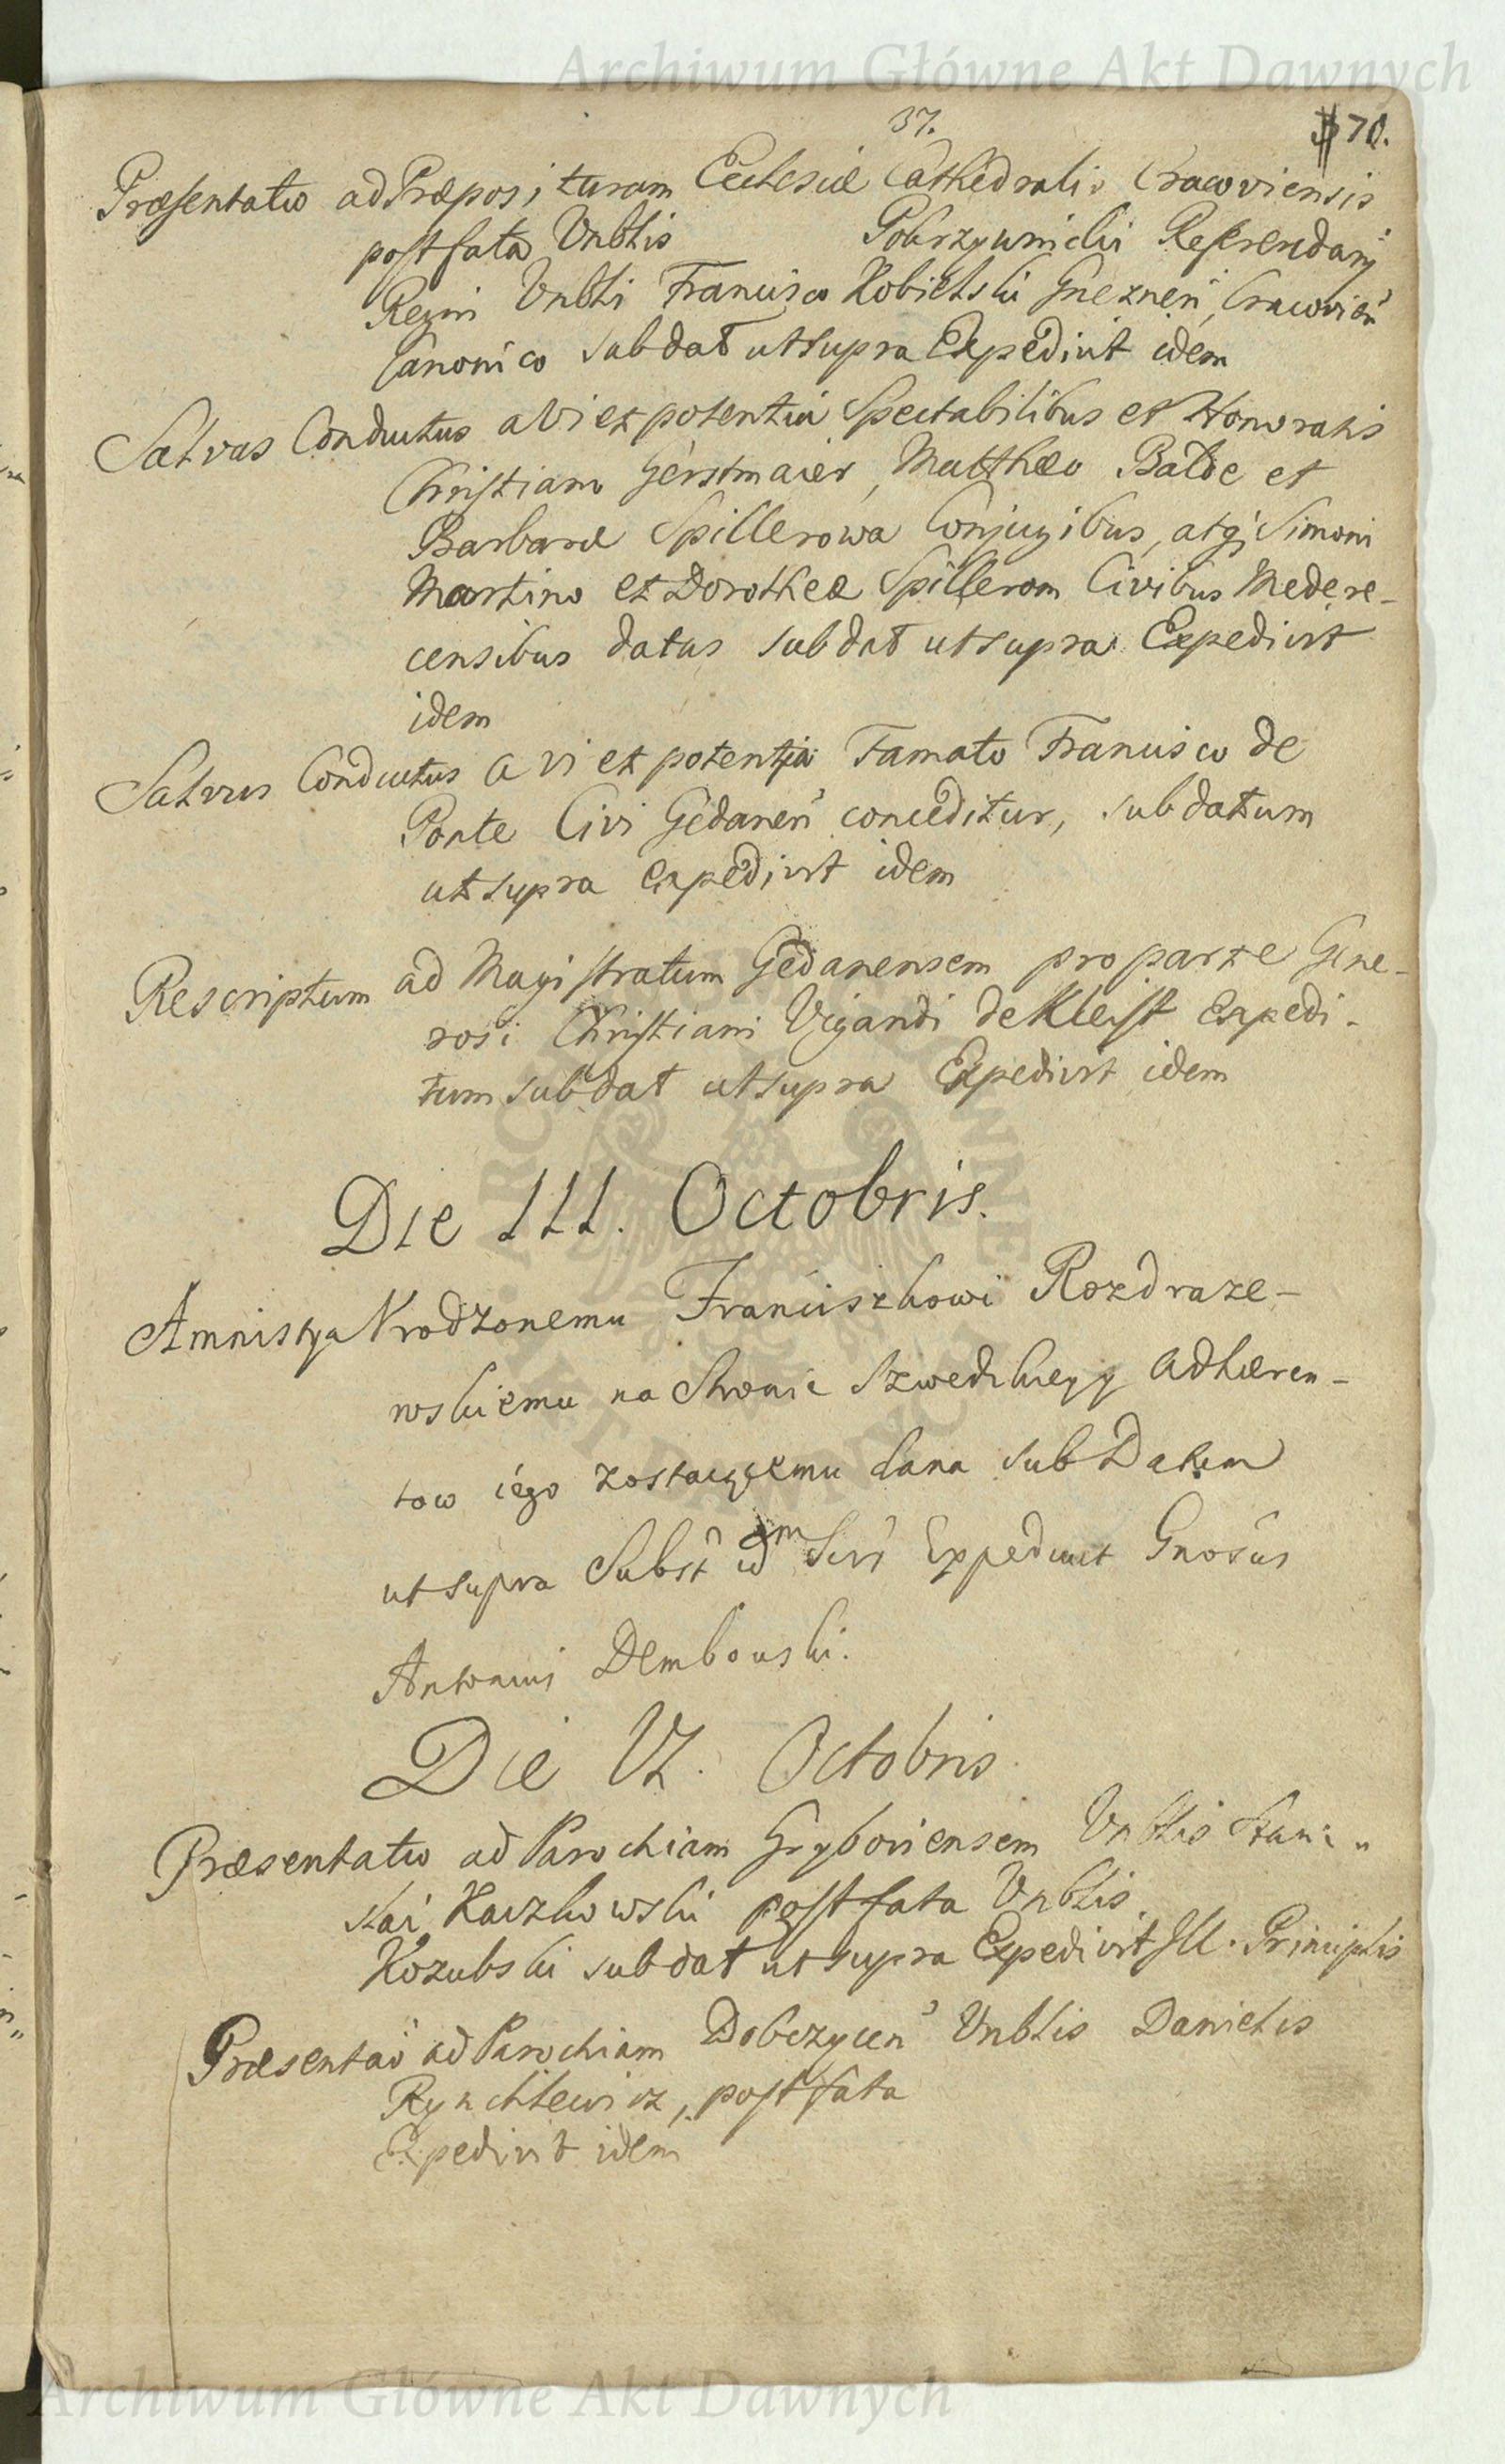 Archiwum Główne Akt Dawnych
37.
70.
Præsentatio ad Præposituram Ecclesiæ Cathedralis Cracoviensis
post fata Vnblis Pobrzywnicki Referendarij
Regni Vnbli Francisco Kobielski Gneznen̄, Cracovien̄
Canonico sub dat ut supra Expedivit idem
Salvus Conductus a vi et potentia Spectabilibus et Honoratis
Christiano Gerstmaier, Matthæo Balde et
Barbaræ Spillerowa Conjugibus, atq; Simoni
Martino et Dorotheæ Spillerom Civibus Medere-
censibus datus sub dat ut supra Expedivit
idem
Salvus Conductus a vi et potentia Famato Francisco de
Ponte Civi Gedanen̄ conceditur, sub datum
ut supra expedivit idem
Rescriptum ad Magistratum Gedanensem pro parte Gene-
rosi Christiani Vigandi de Kleist expedi-
tum sub dat ut supra Expedivit idem
Die III. Octobris.
Amnistya Vrodzonemu Franciszkowi Rozdraze-
wskiemu na Stronie Szwedzkiey y adhæren-
tow iego zostaiącemu dana sub Datum
ut supra Expediuit Gnosus
Antonius Dembouski.
Die VI. Octobris
Præsentatio ad Parochiam Gryboviensem Vnblis Stani-
slai Kaczkowski post fata Vnblis
Kozubski sub dat ut supra Expedivit Ill. Principis
Præsentaō ad Parochiam Dobczycen̄ Vnblis Danielis
Rychlewicz, post fata
Expedivit idem
Archiwum Główne Akt Dawnych